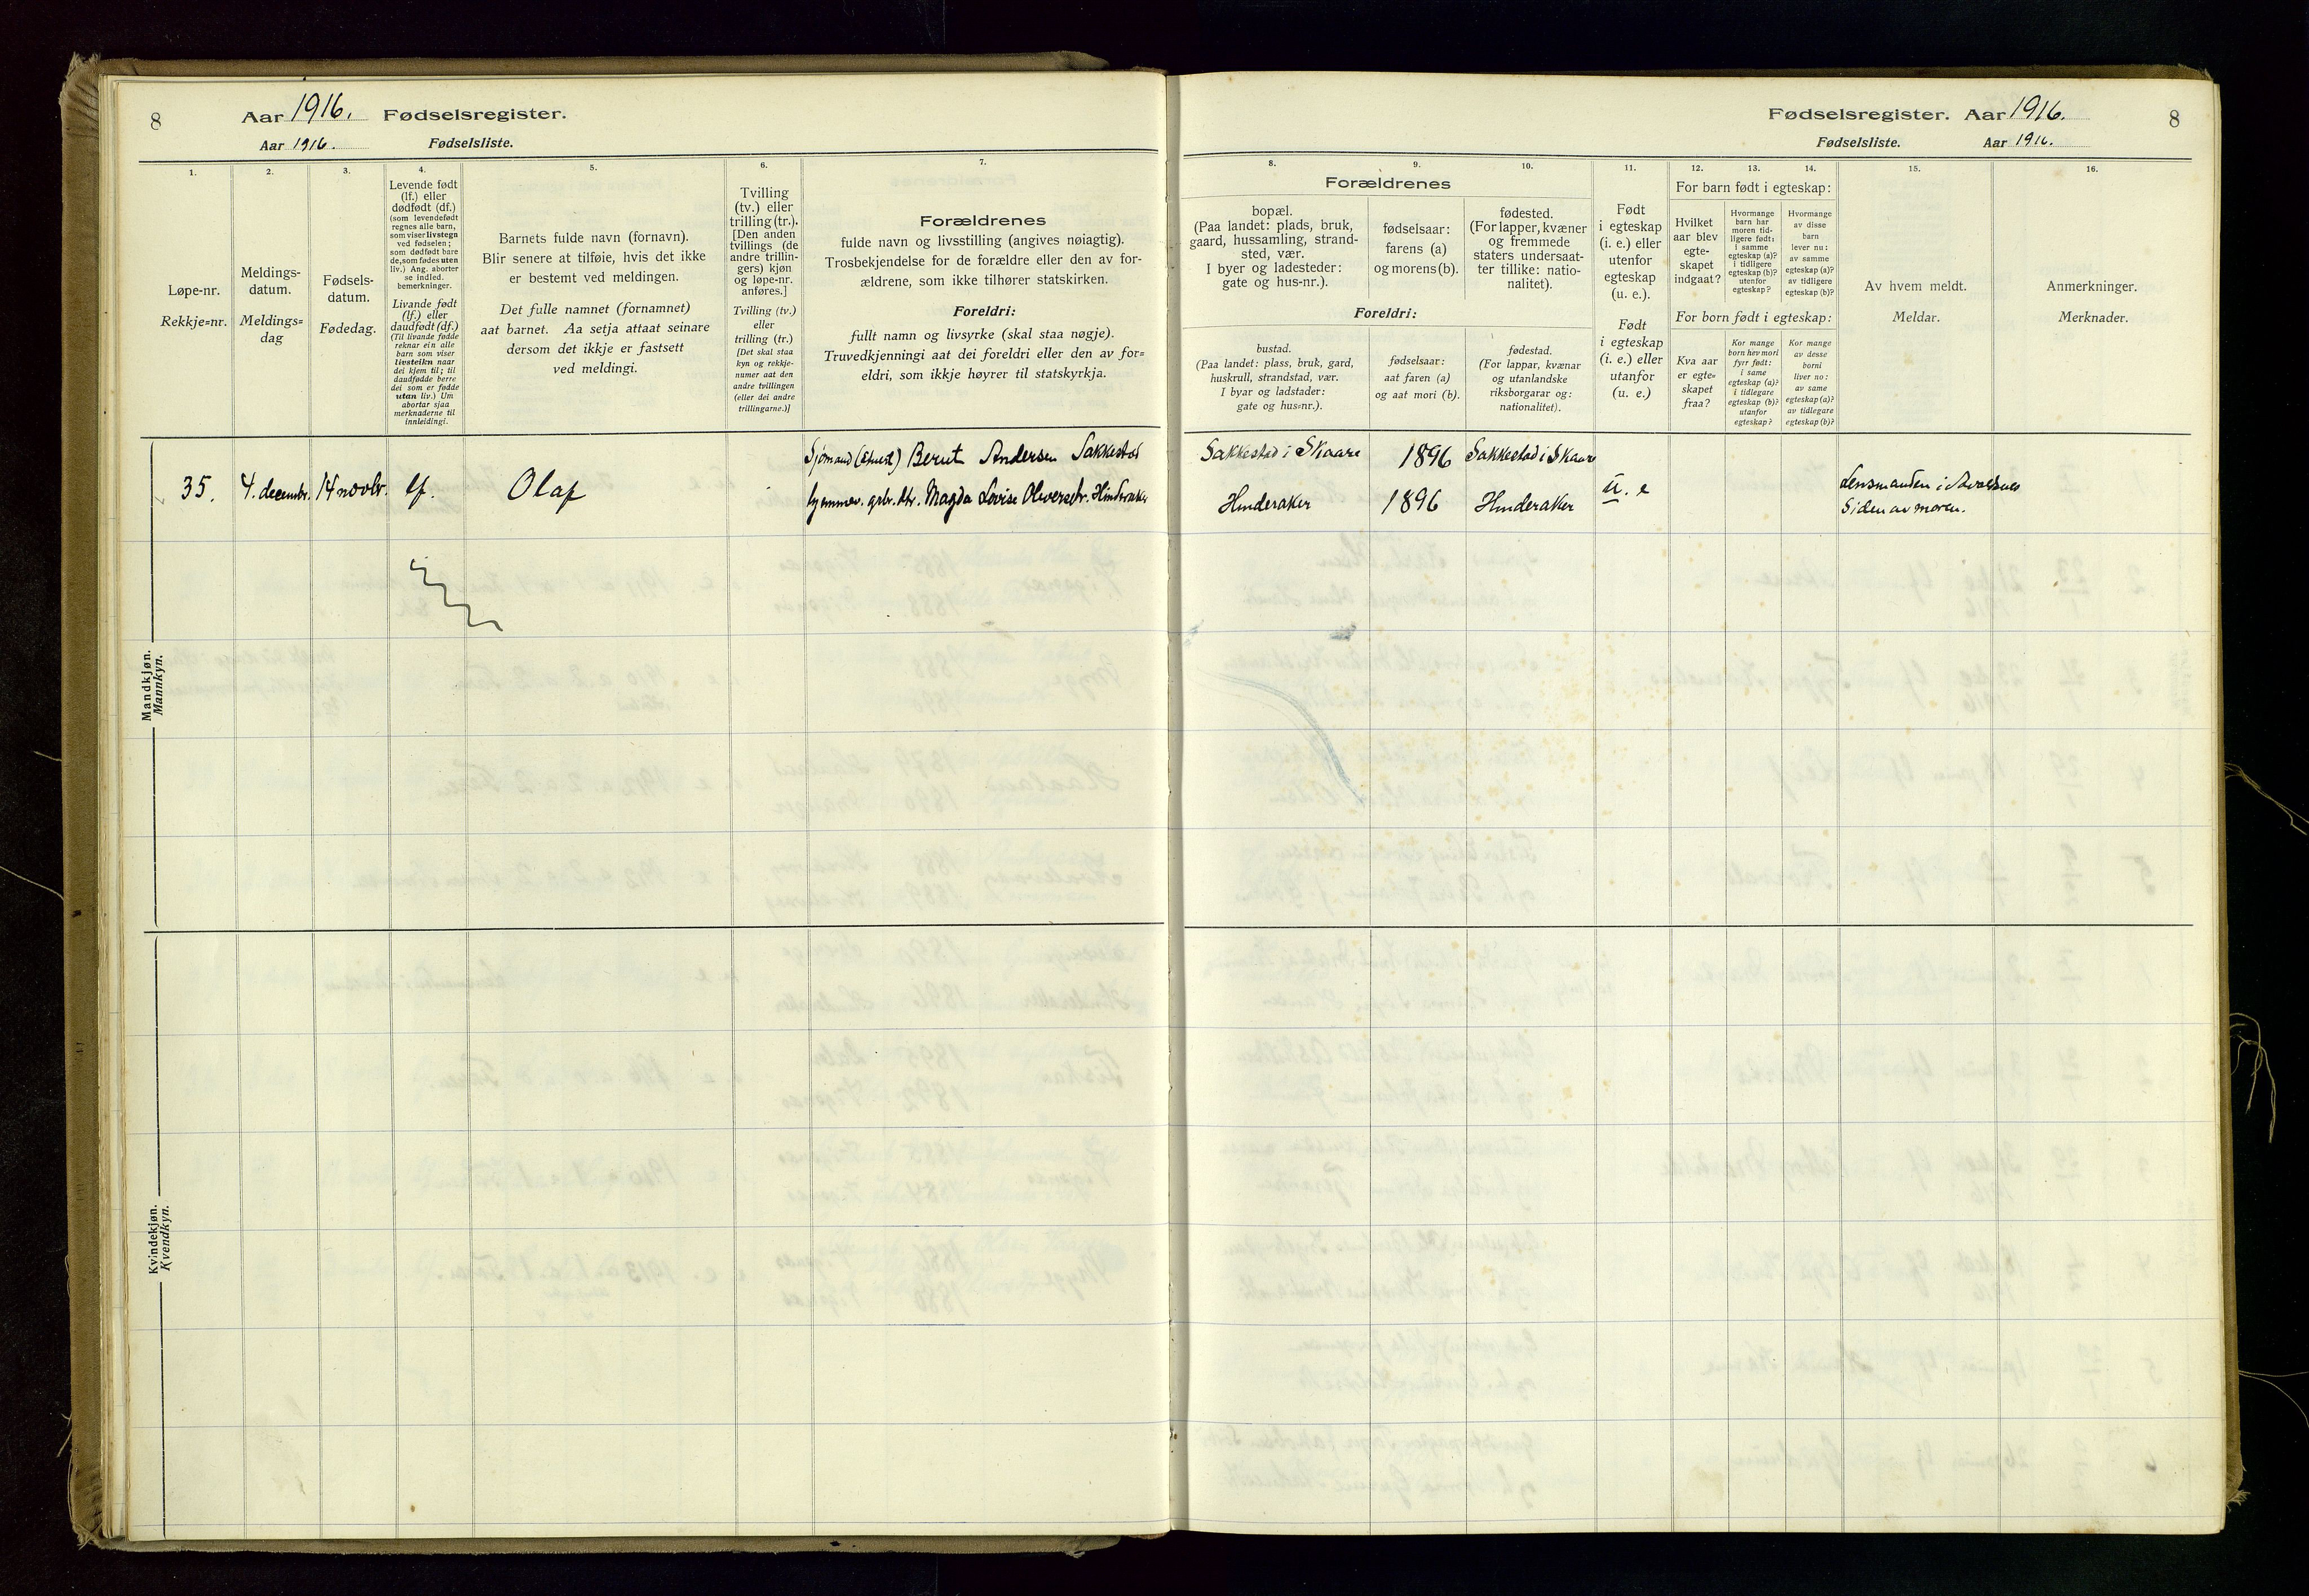 8
Aar 1916. Fødselsregister.
Aar 1916. Fødselsliste.
1.
2.
3.
4.
5.
6.
7.
Løpe-nr.
Rekkje=nr.
Meldings-
datum.
Meldings=
dag
Fødsels-
datum.
Fødedag.
Levende født
(lf.) eller
dødfødt (df.)
(som levendefødt
regnes alle barn,
som viser livstegn
ved fødselen;
som dødfødt bare
de, som fødes uten
liv.) Ang. aborter
se indled.
bemerkninger.
Livande født
(lf.) eller
daudfødt (df.)
(Til livande fødde
reknar ein alle
barn som viser
livsteikn naar
dei kjem til; til
daudfødde berre
dei som er fødde
utan liv.) Um
abortar sjaa
merknaderne til
innleidingi.
Barnets fulde navn (fornavn).
Blir senere at tilføie, hvis det ikke
er bestemt ved meldingen.
Det fulle namnet (fornamnet)
aat barnet. Aa setja attaat seinare
dersom det ikkje er fastsett
ved meldingi.
Tvilling
(tv.) eller
trilling (tr.).
[Den anden
tvillings (de
andre trillin-
gers) kjøn
og løpe-nr.
anføres.]
Tvilling (tv.)
eller
trilling (tr.)
[Det skal staa
kyn og rekkje-
numer aat den
andre tvillingen
(eller dei andre
trillingarne.)]
Forældrenes
fulde navn og livsstilling (angives nøiagtig).
Trosbekjendelse for de forældre eller den av for-
ældrene, som ikke tilhører statskirken.
Foreldri:
fullt namn og livsyrke (skal staa nøgje).
Truvedkjenningi aat dei foreldri eller den av for=
eldri, som ikkje høyrer til statskyrkja.
Sjømand Berent Andersen Sakkestad
35. 4. decembr. 14 novbr. lf. Olaf
Magda Lovise Oliversdtr. Hinderaker
Mandkjøn.
Mannkyn.
Kvindekjøn.
Kvendkyn.
Fødselsregister. Aar 1916.
8
Fødselsliste. Aar 1916.
8.
9.
10.
11.
12.
13.
14.
15.
16.
Forældrenes
bopæl.
(Paa landet: plads, bruk,
gaard, hussamling, strand-
sted, vær.
I byer og ladesteder:
gate og hus-nr.).
fødselsaar:
farens (a)
og morens (b).
fødested.
(For lapper, kvæner
og fremmede
staters undersaat-
ter tillike: natio-
nalitet).
Foreldri:
bustad.
(Paa landet: plass, bruk, gard,
huskrull, strandstad, vær.
I byar og ladstader:
gate og hus=nr.).
fødselsaar:
aat faren (a)
og aat mori (b).
fødestad.
(For lappar, kvænar
og utanlandske
riksborgarar og:
nationalitet).
Født
i egteskap
(i. e.) eller
utenfor
egteskap
(u. e.).
Født
i egteskap
(i. e.) eller
utanfor
(u. e.)
For barn født i egteskap:
Hvilket
aar blev
egte-
skapet
indgaat?
Hvormange
barn har
moren tid-
ligere født:
i samme
egteskap (a)?
i tidligere
egteskap (b)?
utenfor
egteskap?
Hvormange
av disse
barn
lever nu:
av samme
egteskap (a)?
av tidligere
egteskap (b)?
For born født i egteskap:
Kva aar
er egte=
skapet
fraa?
Kor mange
born hev mori
fyrr født:
i same
egteskap (a)?
i tidlegare
egteskap (b)?
utanfor
egteskap?
Kor mange
av desse
borni
liver no:
av same
egteskap (a)?
av tidlegare
egteskap (b)?
Av hvem meldt.
Meldar.
Anmerkninger.
Merknader.
Sakkestad i Skaare 1896 Sakkestad i Skaare
Hinderaker 1896 Hinderaker u. e
Lensmanden i Avaldsnes
Siden av moren.